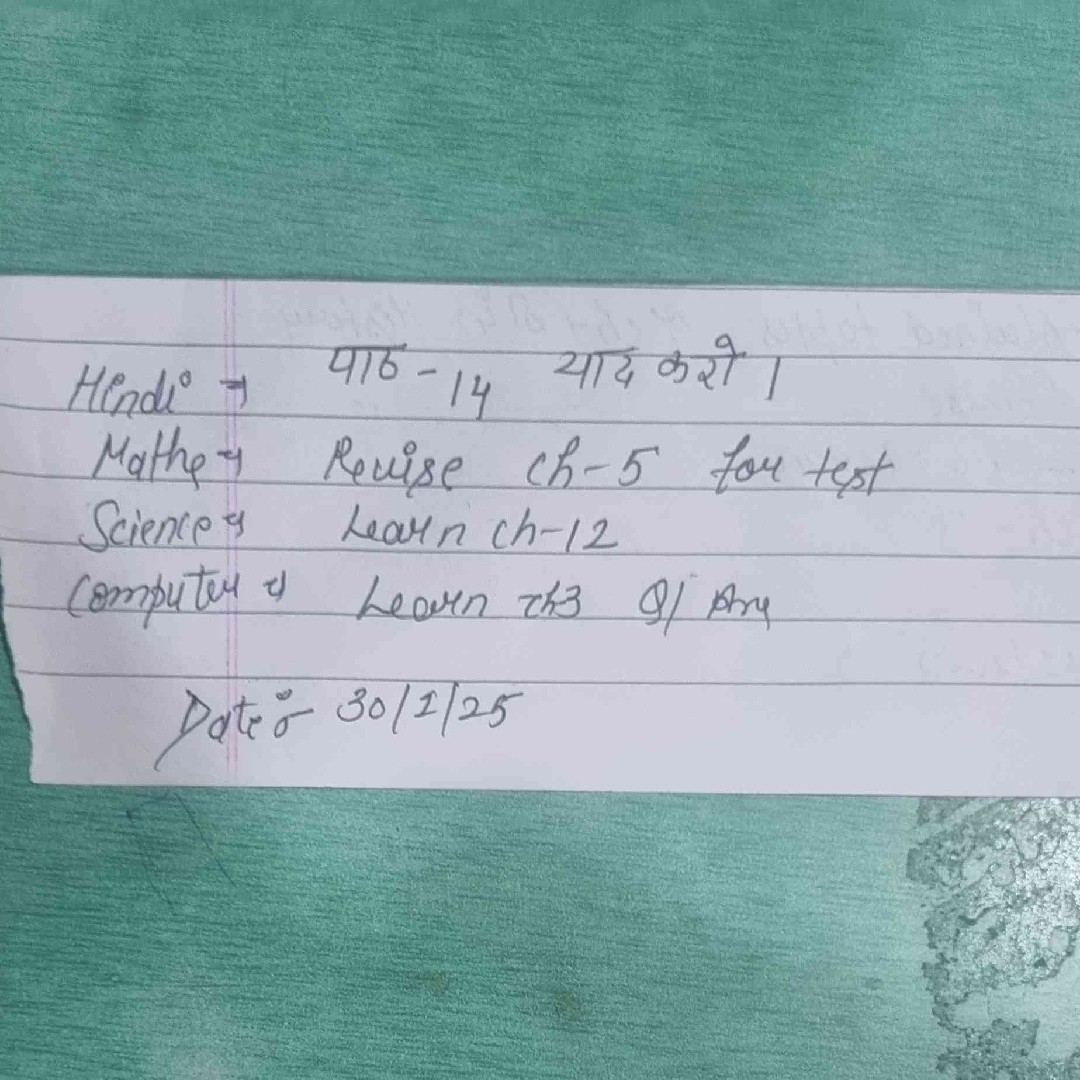 Hindi → पाठ - 14 याद करो।
Maths → Revise ch-5 for test
Science → Learn ch-12
Computer → Learn ch3 Q/Ans
Date :- 30/1/25